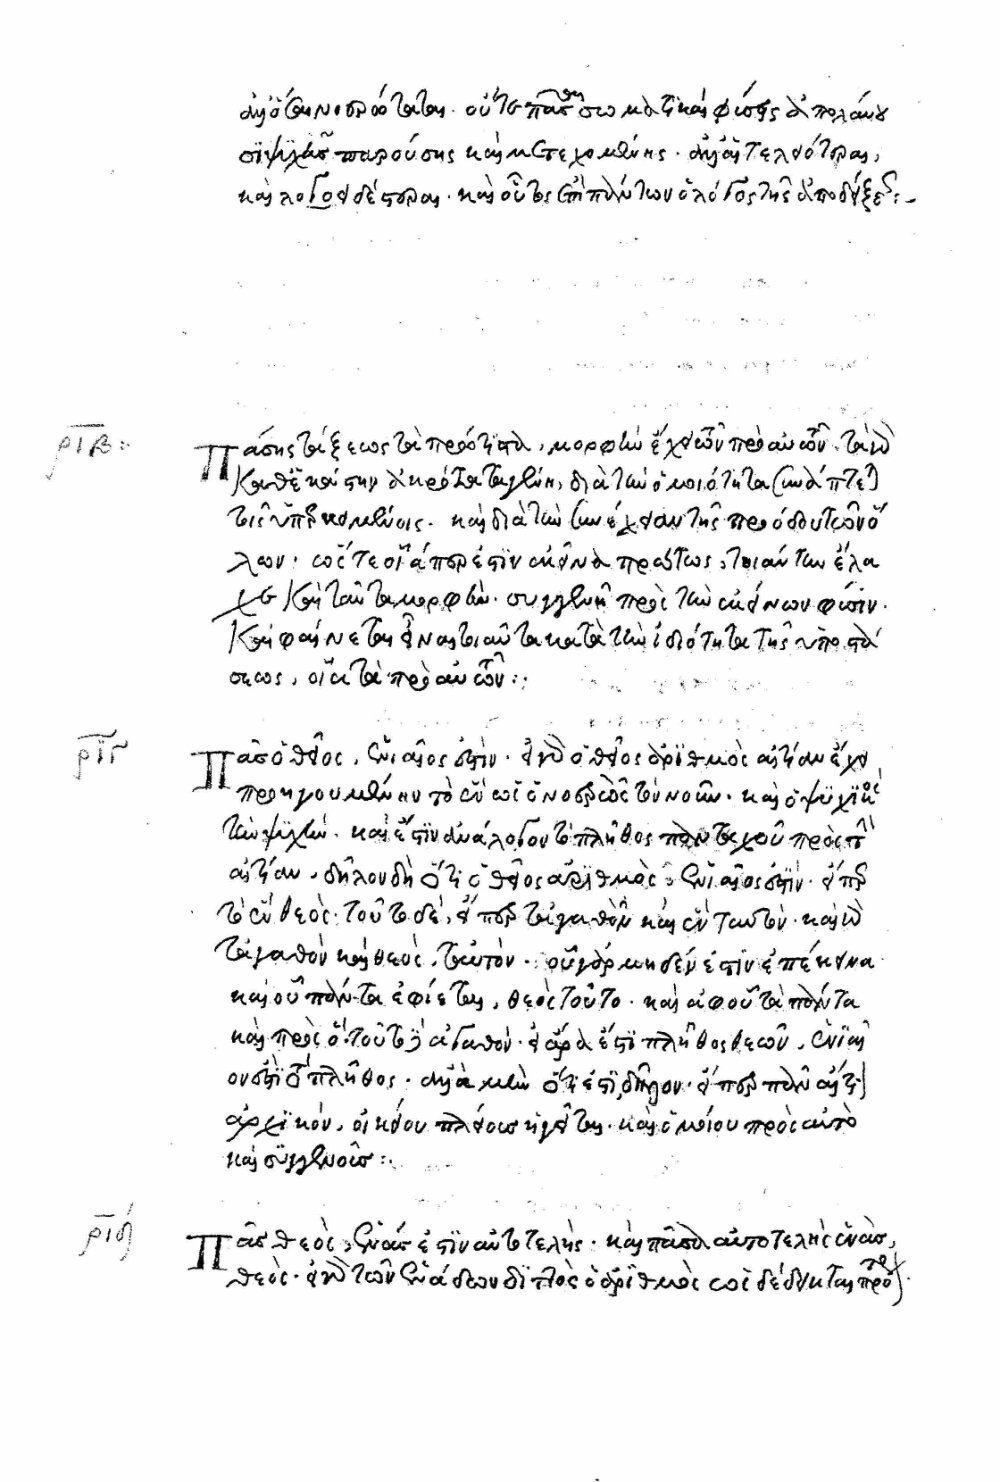 ἀλλ' ὅσαι νοερώταται· οὔτε πᾶσαι σωματικαὶ φύσεις ἀπολαύου
σι ψυχῆς παρούσης καὶ μετεχομένης· ἀλλ' αἱ τελεώτεραι,
καὶ λογοειδέστεραι· καὶ οὗτος ἐπὶ πάντων ὁ λόγος τῆς ἀποδείξεως:-
ριβ:
Πάσης τάξεως τὰ πρώτιστα, μορφὴν ἔχει τῶν πρὸ αὐτῶν· τὰ γὰρ
καθ' ἑκάστην ἀκρότατα γένη, διὰ τὴν ὁμοιότητα συνάπτεται
τοῖς ὑπερκειμένοις· καὶ διὰ τὴν συνέχειαν τῆς προόδου τῶν ὅ
λων· ὥστε οἷάπερ ἐστὶν ἐκεῖνα πρώτως, τοιαύτην ἔλα
χε καὶ ταῦτα μορφὴν· συγγενῆ πρὸς τὴν ἐκείνων φύσιν·
καὶ φαίνεται εἶναι τοιαῦτα κατὰ τὴν ἰδιότητα τῆς ὑποστά
σεως, οἷα τὰ πρὸ αὐτῶν:
ριγ
Πᾶς ὁ θεῖος, ἑνιαῖος ἐστὶν· εἰ γὰρ ὁ θεῖος ἀριθμὸς αἰτίαν ἔχει
προηγουμένην τὸ ἓν ὡς ὁ νοερὸς τὸν νοῦν· καὶ ὁ ψυχικὸς
τὴν ψυχὴν· καὶ ἔστιν ἀνάλογον τὸ πλῆθος πανταχοῦ πρὸς τὴν
αἰτίαν, δῆλον δὴ ὅτι ὁ θεῖος ἀριθμὸς, ἑνιαῖος ἐστὶν· εἴπερ
τὸ ἓν θεὸς· τοῦτο δὲ, εἴπερ τἀγαθὸν καὶ ἓν ταυτὸν· καὶ γὰρ
τἀγαθὸν καὶ θεὸς, ταὐτὸν· οὗ γὰρ μηδέν ἐστιν ἐπέκεινα
καὶ οὗ πάντα ἐφίεται, θεὸς τοῦτο· καὶ ἀφ' οὗ τὰ πάντα
καὶ πρὸς ὃ τοῦτο ἀγαθὸν· εἰ ἄρα ἔστι πλῆθος θεῶν, ἑνιαῖ
ον ἐστὶ τὸ πλῆθος· ἀλλὰ μὴν ὅτι ἐστὶ, δῆλον· εἴπερ πᾶν αἴτιον
ἀρχικὸν, οἰκείου πλήθους ἡγεῖται· καὶ ὁμοίου πρὸς αὐτὸ
καὶ συγγενοῦς:
ριδ
Πᾶς θεὸς, ἑνάς ἐστιν αὐτοτελὴς· καὶ πᾶσα αὐτοτελὴς ἑνὰς,
θεὸς· εἰ γὰρ τῶν ἑνάδων διττὸς ὁ ἀριθμὸς ὡς δέδεικται πρότερον·